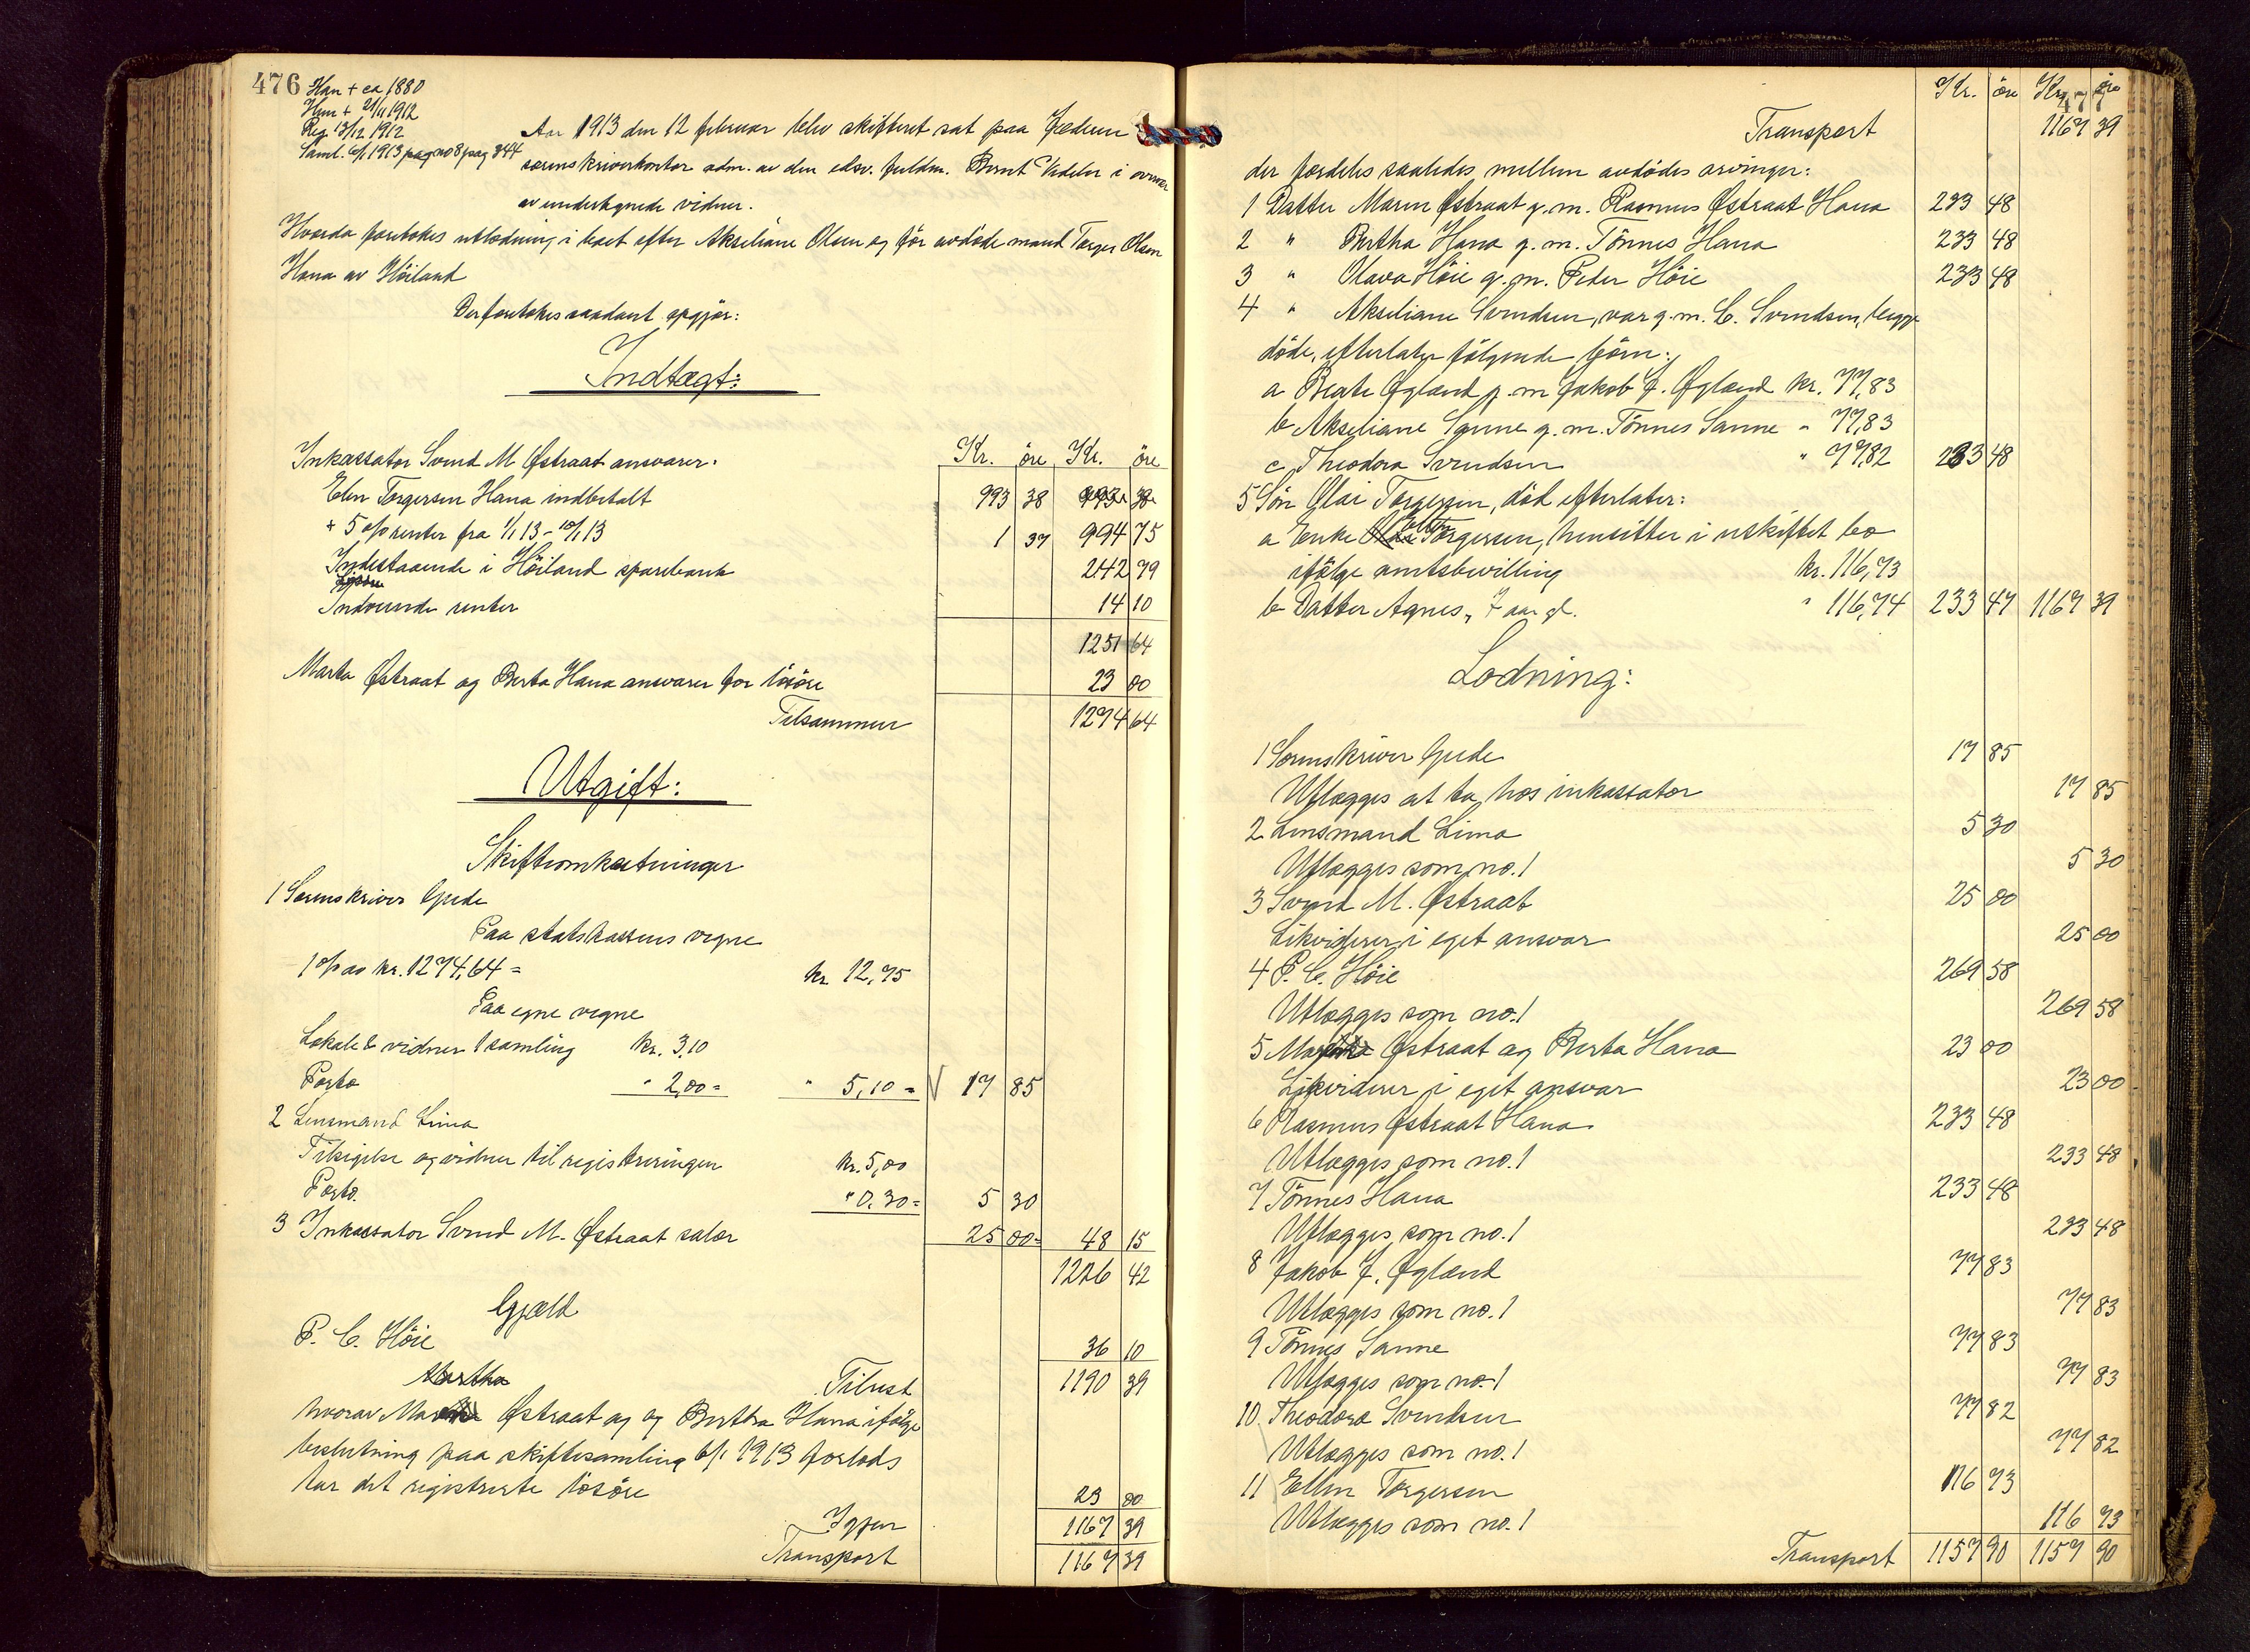 476 Han + ca 1880
Hun + 21/11 1912
Reg. 13/12 1912
Saml. 6/1 1913 pag no 8 pag 344
Aar 1913 den 12 februar blev skifteret sat paa Jædren
sorenskriverkontor adm. av den edsv. fuldm. Bernt Vedeler i overvær
av undertegnede vidner.
Hvorda foretokes utlodning i boet efter Akseliane Olsen og før avdøde mand Torger Olsen
Hana av Höiland
Der foretokes saadant opgjør:
Indtægt:
Kr. øre Kr. øre
Inkassator Svend M Østraat ansvarer:
Elen Torgersen Hana indbetalt 993 38 993 38
+ 5 o/o renter fra 1/1 13 - 10/1 13 1 37 994 75
Indestaaende i Höiland sparebank 242 79
Indvundne renter 14 10
1251 64
Marta Østraat og Berta Hana ansvarer for løsøre 23 00
Tilsammen 1274 64
Utgift:
Skifteomkostninger
1 Sorenskriver Gude
Paa statskassens vegne
1 o/o av kr. 1274,64 = kr. 12,75
Paa egne vegne
Lokale & vidner 1 samling kr. 3,10
Porto " 2,00 = " 5,10 = 17 85
2 Lensmand Lima
Tilsigelse og vidner til registreringen kr. 5,00
Porto. " 0.30 = 5 30
3 Inkassator Svend M. Østraat salær 25 00 = 48 15
1226 42
Gjæld
P. C. Höie 36 10
Martha Tilrest 1190 39
hvorav Østraat og og Bertha Hana ifølge
beslutning paa skiftesamling 6/1 1913 forlods
tar det registrerte løsøre 23 00
Igjen 1167 39
Transport 1167 39
Kr. øre Kr. øre
477
Transport 1167 39
der fordeles saaledes mellem avdødes arvinger:
1 Datter Maren Østraat g. m. Rasmus Østraat Hana 233 48
2 " Bertha Hana g. m. Tönnes Hana 233 48
3 " Olava Höie g. m. Peder Höie 233 48
4 " Akseliane Svendsen, var g. m. C. Svendsen, begge
døde, efterlater følgende børn:
a Beate Øgland g. m Jakob J. Øgland kr. 77,83
b Akseliane Sanne g. m. Tönnes Sanne " 77,83
c Theodora Svendsen " 77,82 233 48
5 Søn Olai Torgersen, død efterlater:
a Enke Ellen Torgersen, hensitter i uskiftet bo
ifølge amtsbevilling kr. 116,73
b Datter Agnes, 7 aar gl. " 116,74 233 47 1167 39
Lodning:
1 Sorenskriver Gude 17 85
Utlægges at ta hos inkassator 17 85
2 Lensmand Lima 5 30
Utlægges som no. 1 5 30
3 Svend M. Østraat 25 00
Likviderer i eget ansvar 25 00
4 P. C. Höie 269 58
Utlægges som no. 1 269 58
5 Østraat og Berta Hana 23 00
Likviderer i eget ansvar 23 00
6 Rasmus Østraat Hana 233 48
Utlægges som no. 1 233 48
7 Tönnes Hana 233 48
Utlægges som no. 1 233 48
8 Jakob J. Øgland 77 83
Utlægges som no. 1 77 83
9 Tönnes Sanne 77 83
Utlægges som no. 1 77 83
10 Theodora Svendsen 77 82
Utlægges som no. 1 77 82
11 Ellen Torgersen 116 73
Utlægges som no. 1 116 73
Transport 1157 90 1157 90